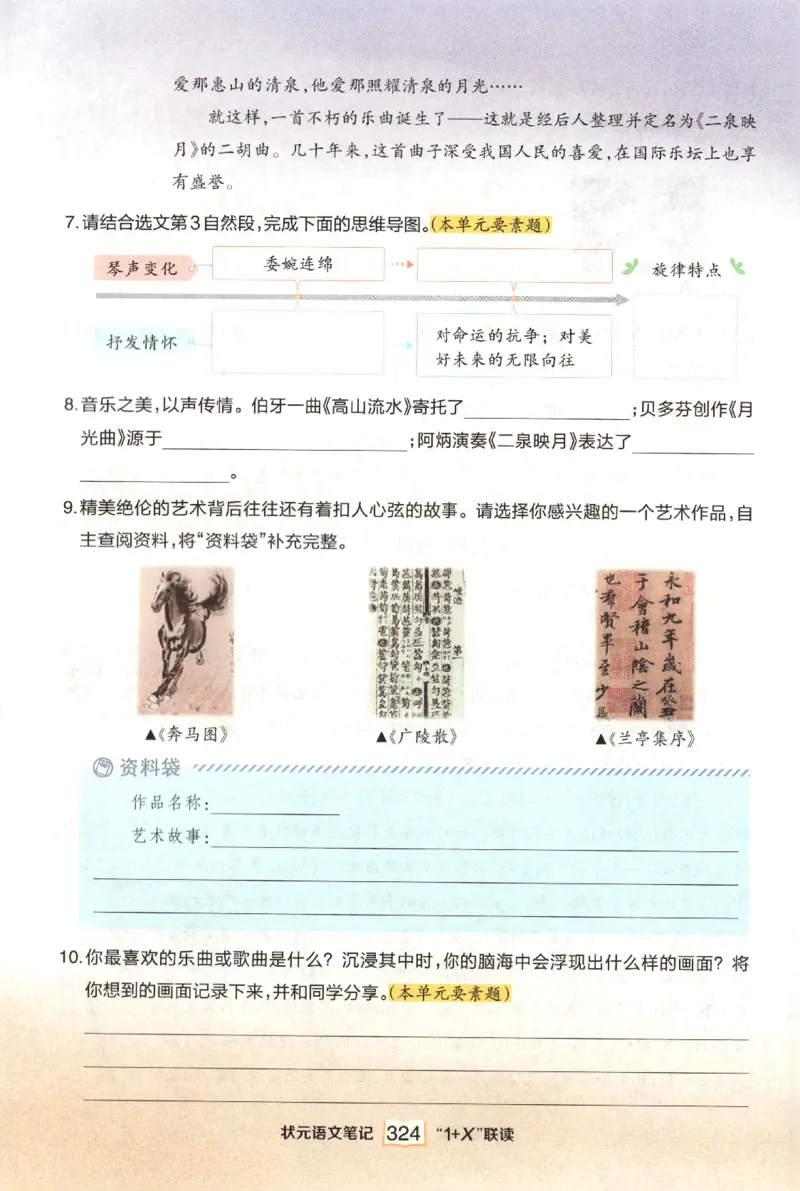 爱那惠山的清泉,他爱那照耀清泉的月光……
就这样,一首不朽的乐曲诞生了——这就是经后人整理并定名为《二泉映
月》的二胡曲。几十年来,这首曲子深受我国人民的喜爱,在国际乐坛上也享
有盛誉。
7.请结合选文第3自然段,完成下面的思维导图。(本单元要素题)
琴声变化
委婉连绵
旋律特点
抒发情怀
对命运的抗争;对美
好未来的无限向往
8.音乐之美,以声传情。伯牙一曲《高山流水》寄托了;贝多芬创作《月
光曲》源于;阿炳演奏《二泉映月》表达了
。
9.精美绝伦的艺术背后往往还有着扣人心弦的故事。请选择你感兴趣的一个艺术作品,自
主查阅资料,将“资料袋”补充完整。
永和九年歲在癸丑
于會稽山陰之蘭
也羣賢畢至少長
▲《奔马图》
▲《广陵散》
▲《兰亭集序》
资料袋
作品名称:
艺术故事:
10.你最喜欢的乐曲或歌曲是什么?沉浸其中时,你的脑海中会浮现出什么样的画面?将
你想到的画面记录下来,并和同学分享。(本单元要素题)
状元语文笔记 324 “1+X”联读